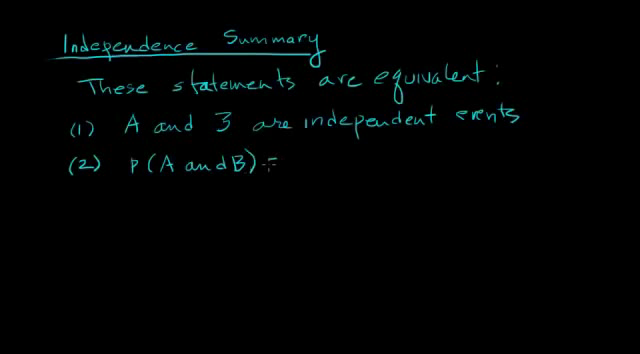 Independence Summary
These statements are equivalent:
(1) A and B are independent events
(2) P(A and B) =